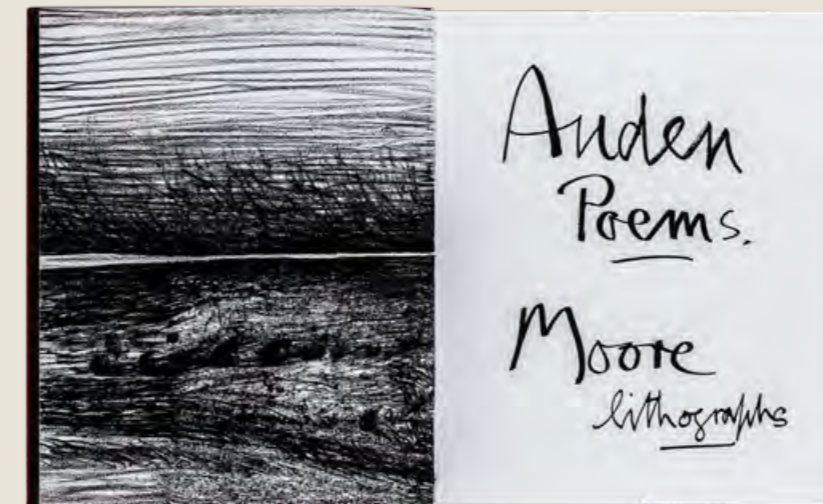 Auden
Poems.
Moore
lithographs